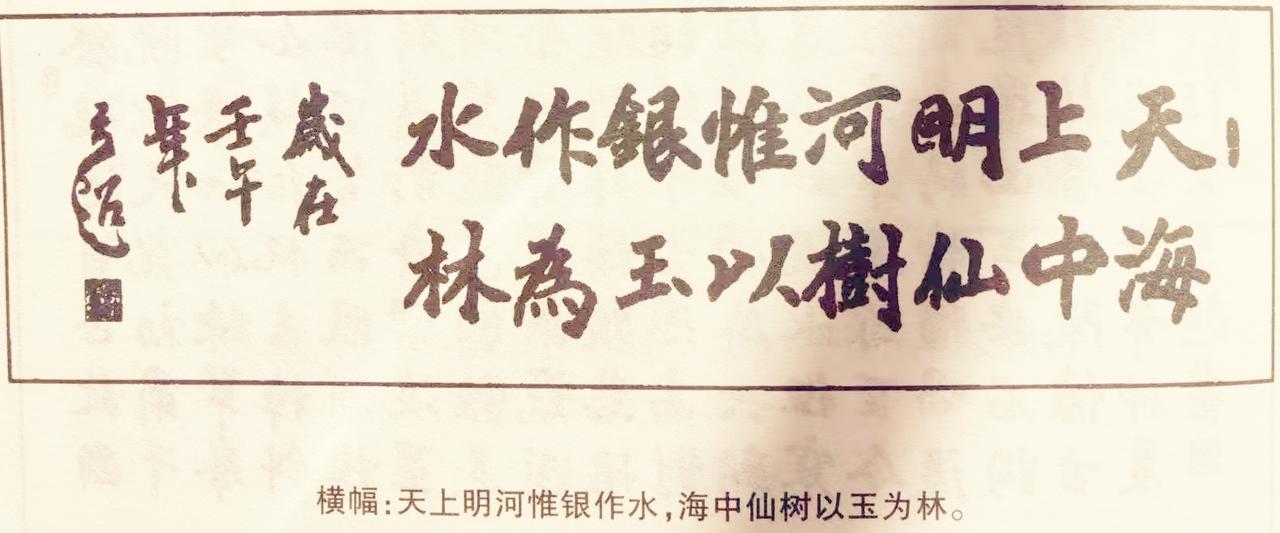 天上明河惟銀作水
海中仙樹以玉為林
歲在
壬午
年
横幅:天上明河惟银作水,海中仙树以玉为林。